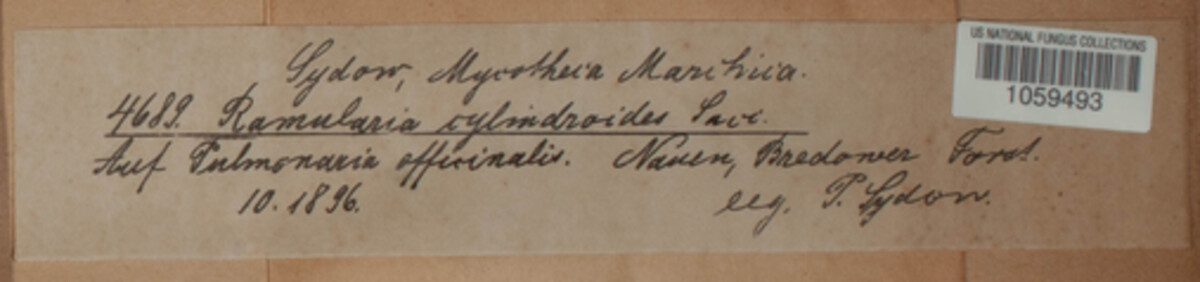 Sydow, Mycotheca Marchica.
4689. Ramularia cylindroides Sacc.
Auf Pulmonaria officinalis. Nauen, Bredower Forst.
10. 1896. leg. P. Sydow.
US NATIONAL FUNGUS COLLECTIONS
1059493